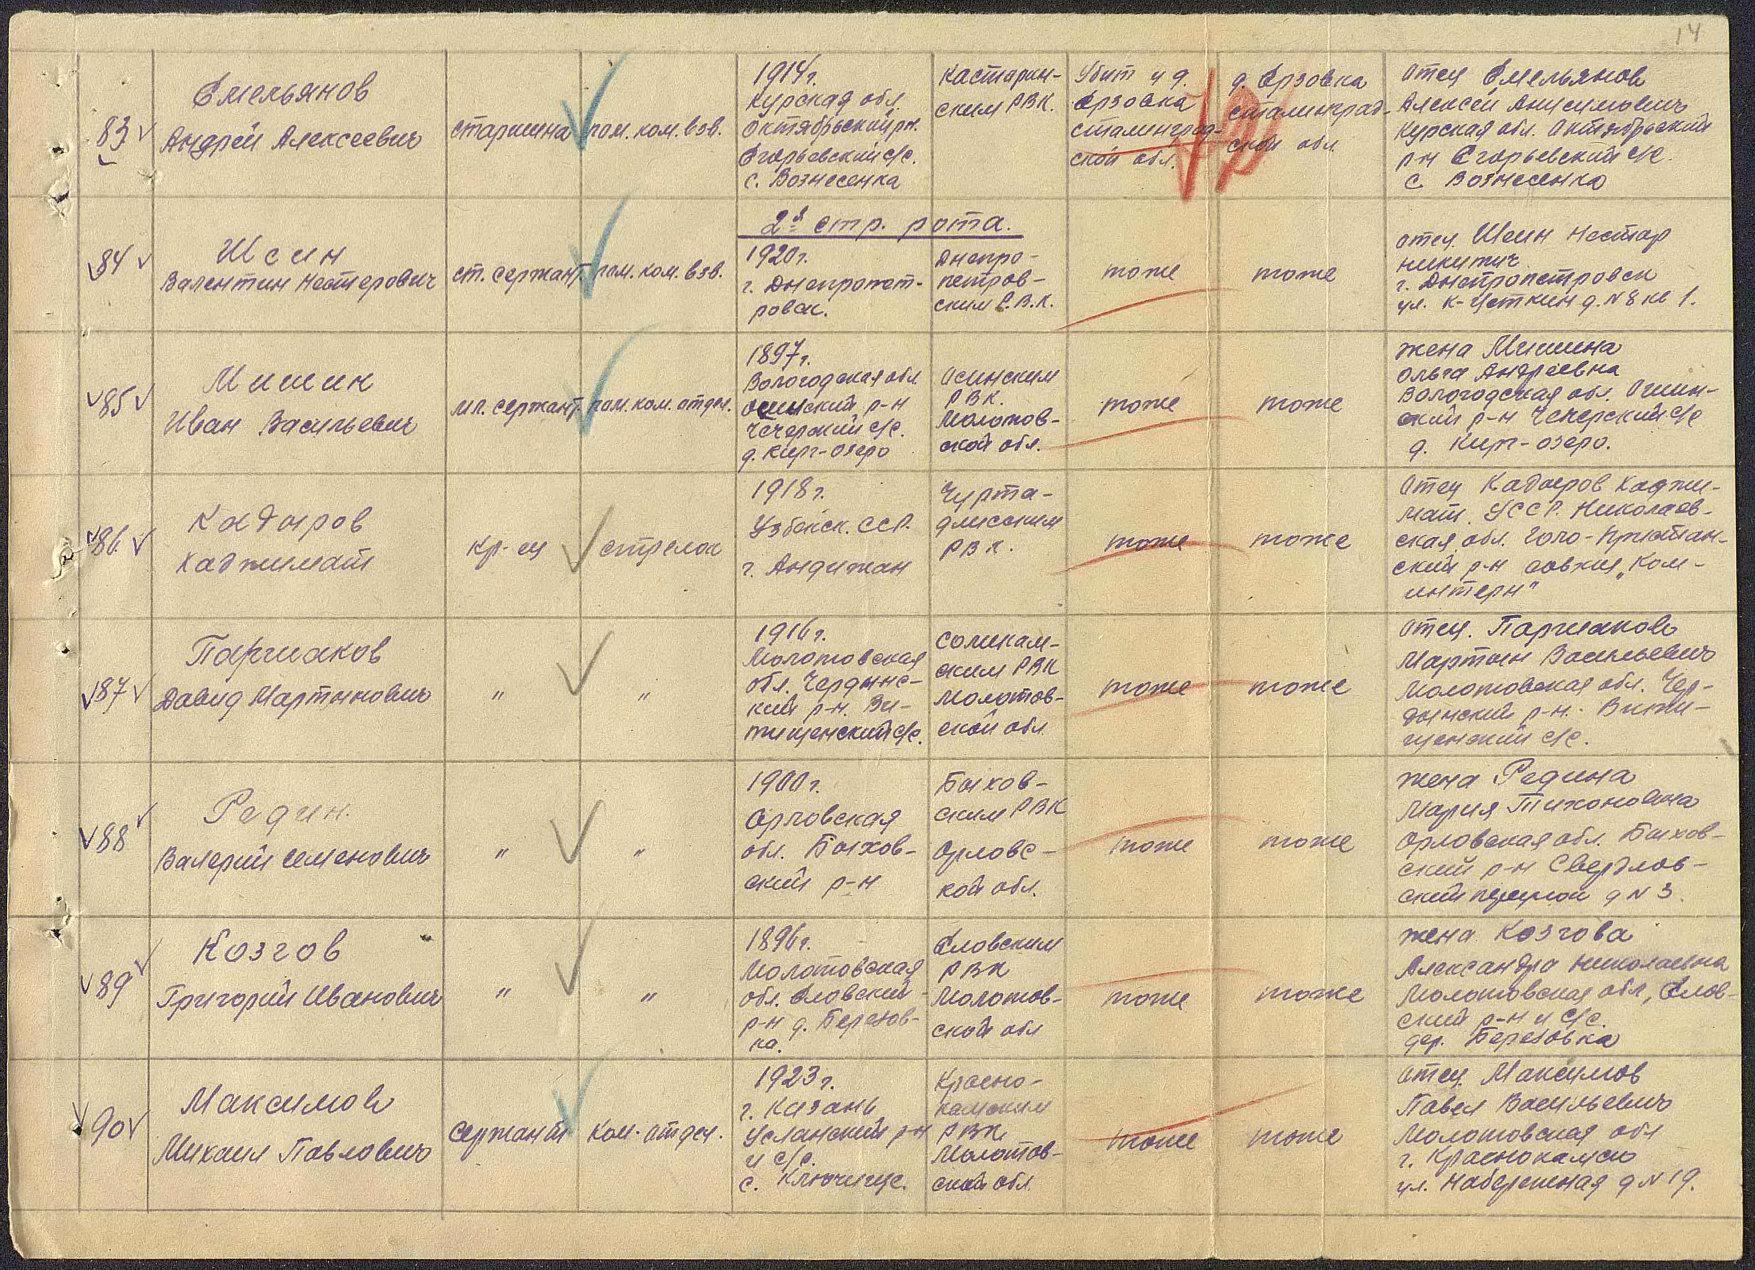 14
83
Емельянов
Андрей Алексеевич
старшина
пом. ком. взв.
1914 г.
Курская обл.
Октябрьский р-н.
Егорьевский с/с.
с. Вознесенка
Касторен-
ским РВК.
Убит у д.
Ерзовка
сталинград-
ской обл.
д. Ерзовка
сталинград-
ской обл.
отец Емельянов
Алексей Анисимович
Курская обл. Октябрьский
р-н Егорьевский с/с.
с Вознесенка
2я стр. рота.
84
Шеин
Валентин Нестерович
ст. сержант
пом. ком. взв.
1920 г.
г. Днепропет-
ровск.
Днепро-
петров-
ским Г.В.К.
тоже
тоже
отец Шеин Нестор
никитич
г. Днепропетровск
ул. К-Цеткин д. N 8 кв 1.
85
Мишин
Иван Васильевич
мл. сержант
пом. ком. отдел.
1897 г.
Вологодская обл
р-н
с/с.
д. Кирг-озеро
Осинским
РВК.
Молотов-
ской обл.
тоже
тоже
жена Мишина
Ольга Андреевна
Вологодская обл. Ошин-
ский р-н Чечерский с/с
д. Кирг-озеро.
86
Кадыров
Хаджимат
кр-ец
стрелок
1918 г.
Узбекск. ССР.
г. Андижан
РВК.
тоже
тоже
отец Кадыров Хаджи-
мат УССР. Николаев-
ская обл. Голо-Пристан-
ский р-н совхоз „Ком-
интерн"
87
Паршаков
Давид Мартынович
"
"
1916 г.
Молотовская
обл. Чердынс-
кий р-н.
с/с.
Соликам-
ским РВК
Молотов-
ской обл
тоже
тоже
отец. Паршаков
Мартын Васильевич
Молотовская обл. Чер-
дынский р-н.
с/с.
88
Редин.
Валерий Семенович
"
"
1900 г.
Орловская
обл. Быхов-
ский р-н
Быхов-
ским РВК
Орловс-
кой обл.
тоже
тоже
жена Редина
Мария Тихоновна
Орловская обл. Быхов-
ский р-н Свердлов-
ский д N 3.
89
Козгов
Григорий Иванович
"
"
1896 г.
Молотовская
обл. Еловский
р-н д. Березов-
ка.
Еловским
РВК
Молотов-
ской обл
тоже
тоже
жена Козгова
Александра Николаевна
Молотовская обл, Елов-
ский р-н и с/с.
дер. Березовка
90
Максимов
Михаил Павлович
Сержант
Ком. отдел.
1923 г.
г. Казань
р-н
и с/с.
с. Ключищи.
Красно-
камским
РВК
Молотов-
ской обл.
тоже
тоже
отец Максимов
Павел Васильевич
Молотовская обл
г. Краснокамск
ул. Набережная д N 19.